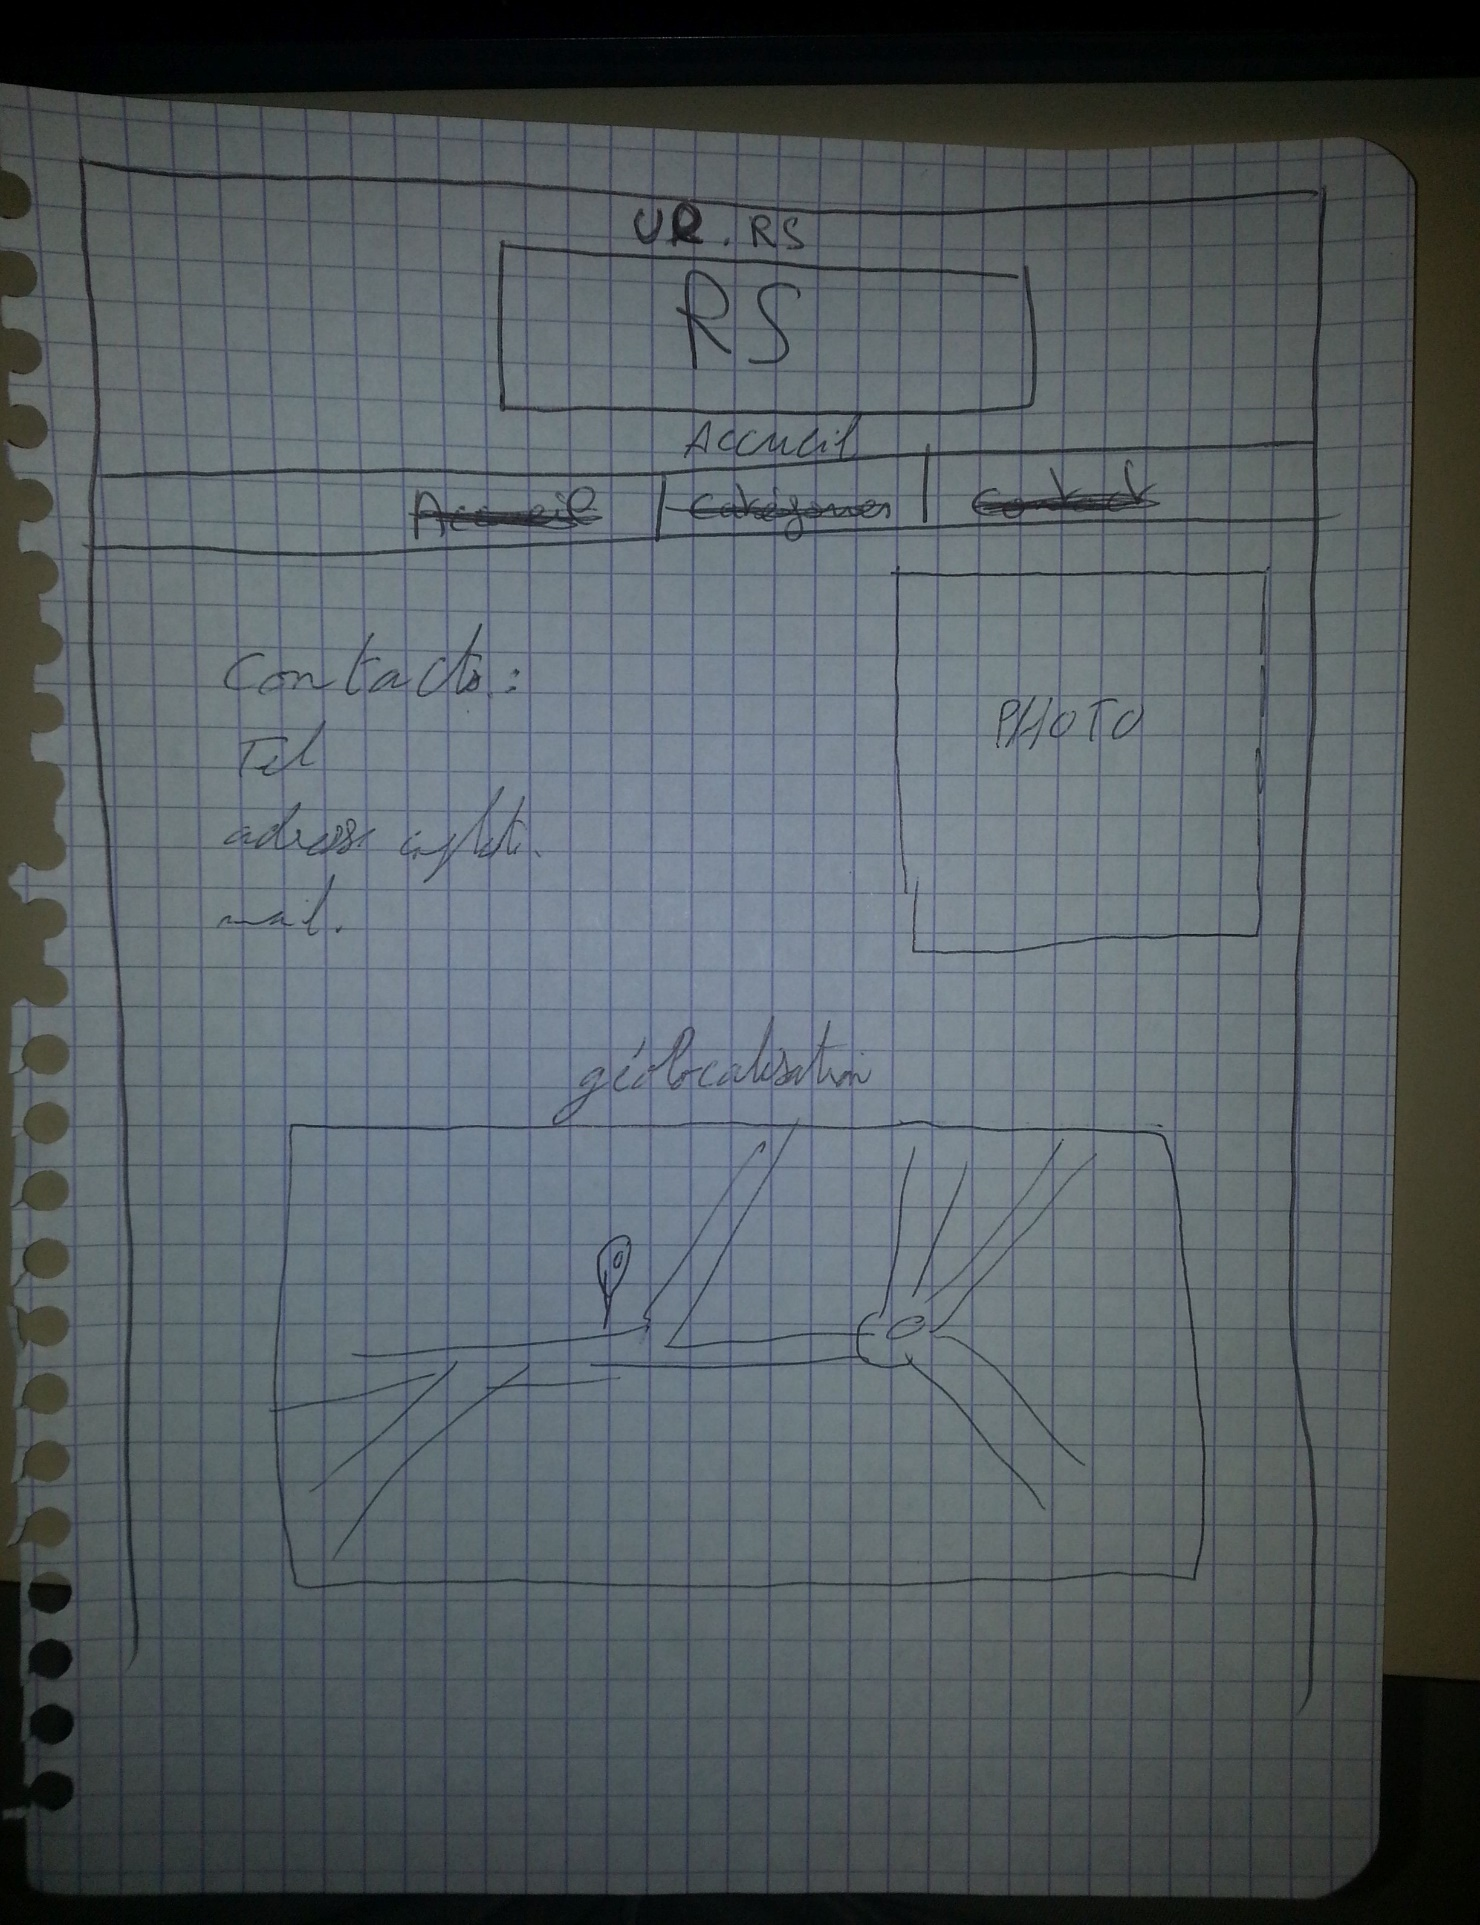 UR. RS
RS
Accueil
Accueil Catégories Contact
Contacts:
PHOTO
Tel
adresse complète.
mail.
géolocalisation